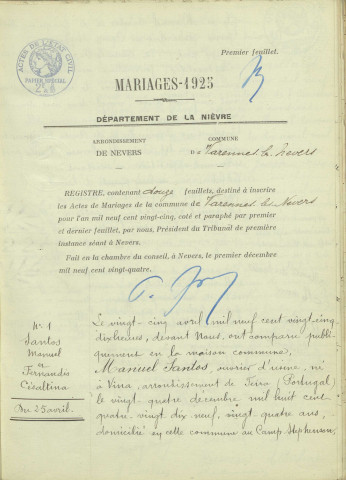 Premier feuillet.
ACTES DE L'ETAT CIVIL
PAPIER SPÉCIAL
MARIAGES-1925
DÉPARTEMENT DE LA NIÈVRE
ARRONDISSEMENT
DE NEVERS
COMMUNE
De Varennes les Nevers
REGISTRE, contenant douze feuillets, destiné à inscrire
les Actes de Mariages de la commune de Varennes les Nevers
pour l'an mil neuf cent vingt-cinq, coté et paraphé par premier
et dernier feuillet, par nous, Président du Tribunal de première
instance séant à Nevers.
Fait en la chambre du conseil, à Nevers, le premier décembre
mil neuf cent vingt-quatre.
No 1
Santos
Manuel
et
Fernandes
Du 25 avril.
Le vingt-cinq avril mil neuf cent vingt cinq
dix heures, devant Nous, ont comparu publi-
quement en la maison commune,
Manuel Santos, ouvrier d'usine, né
à Vina, arrondissement de Terra (Portugal)
le vingt-quatre décembre mil huit cent
quatre-vingt dix neuf, vingt-quatre ans,
domicilié en cette commune au Camp Stephenson,